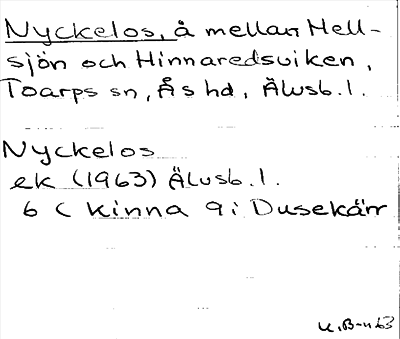 Nyckelos, å mellan Hell-
sjön och Hinnaredsviken,
Toarps sn, Ås hd, Älvsb. l.
Nyckelos
ek (1963) Älvsb. l.
6 C Kinna 9 i Dusekärr